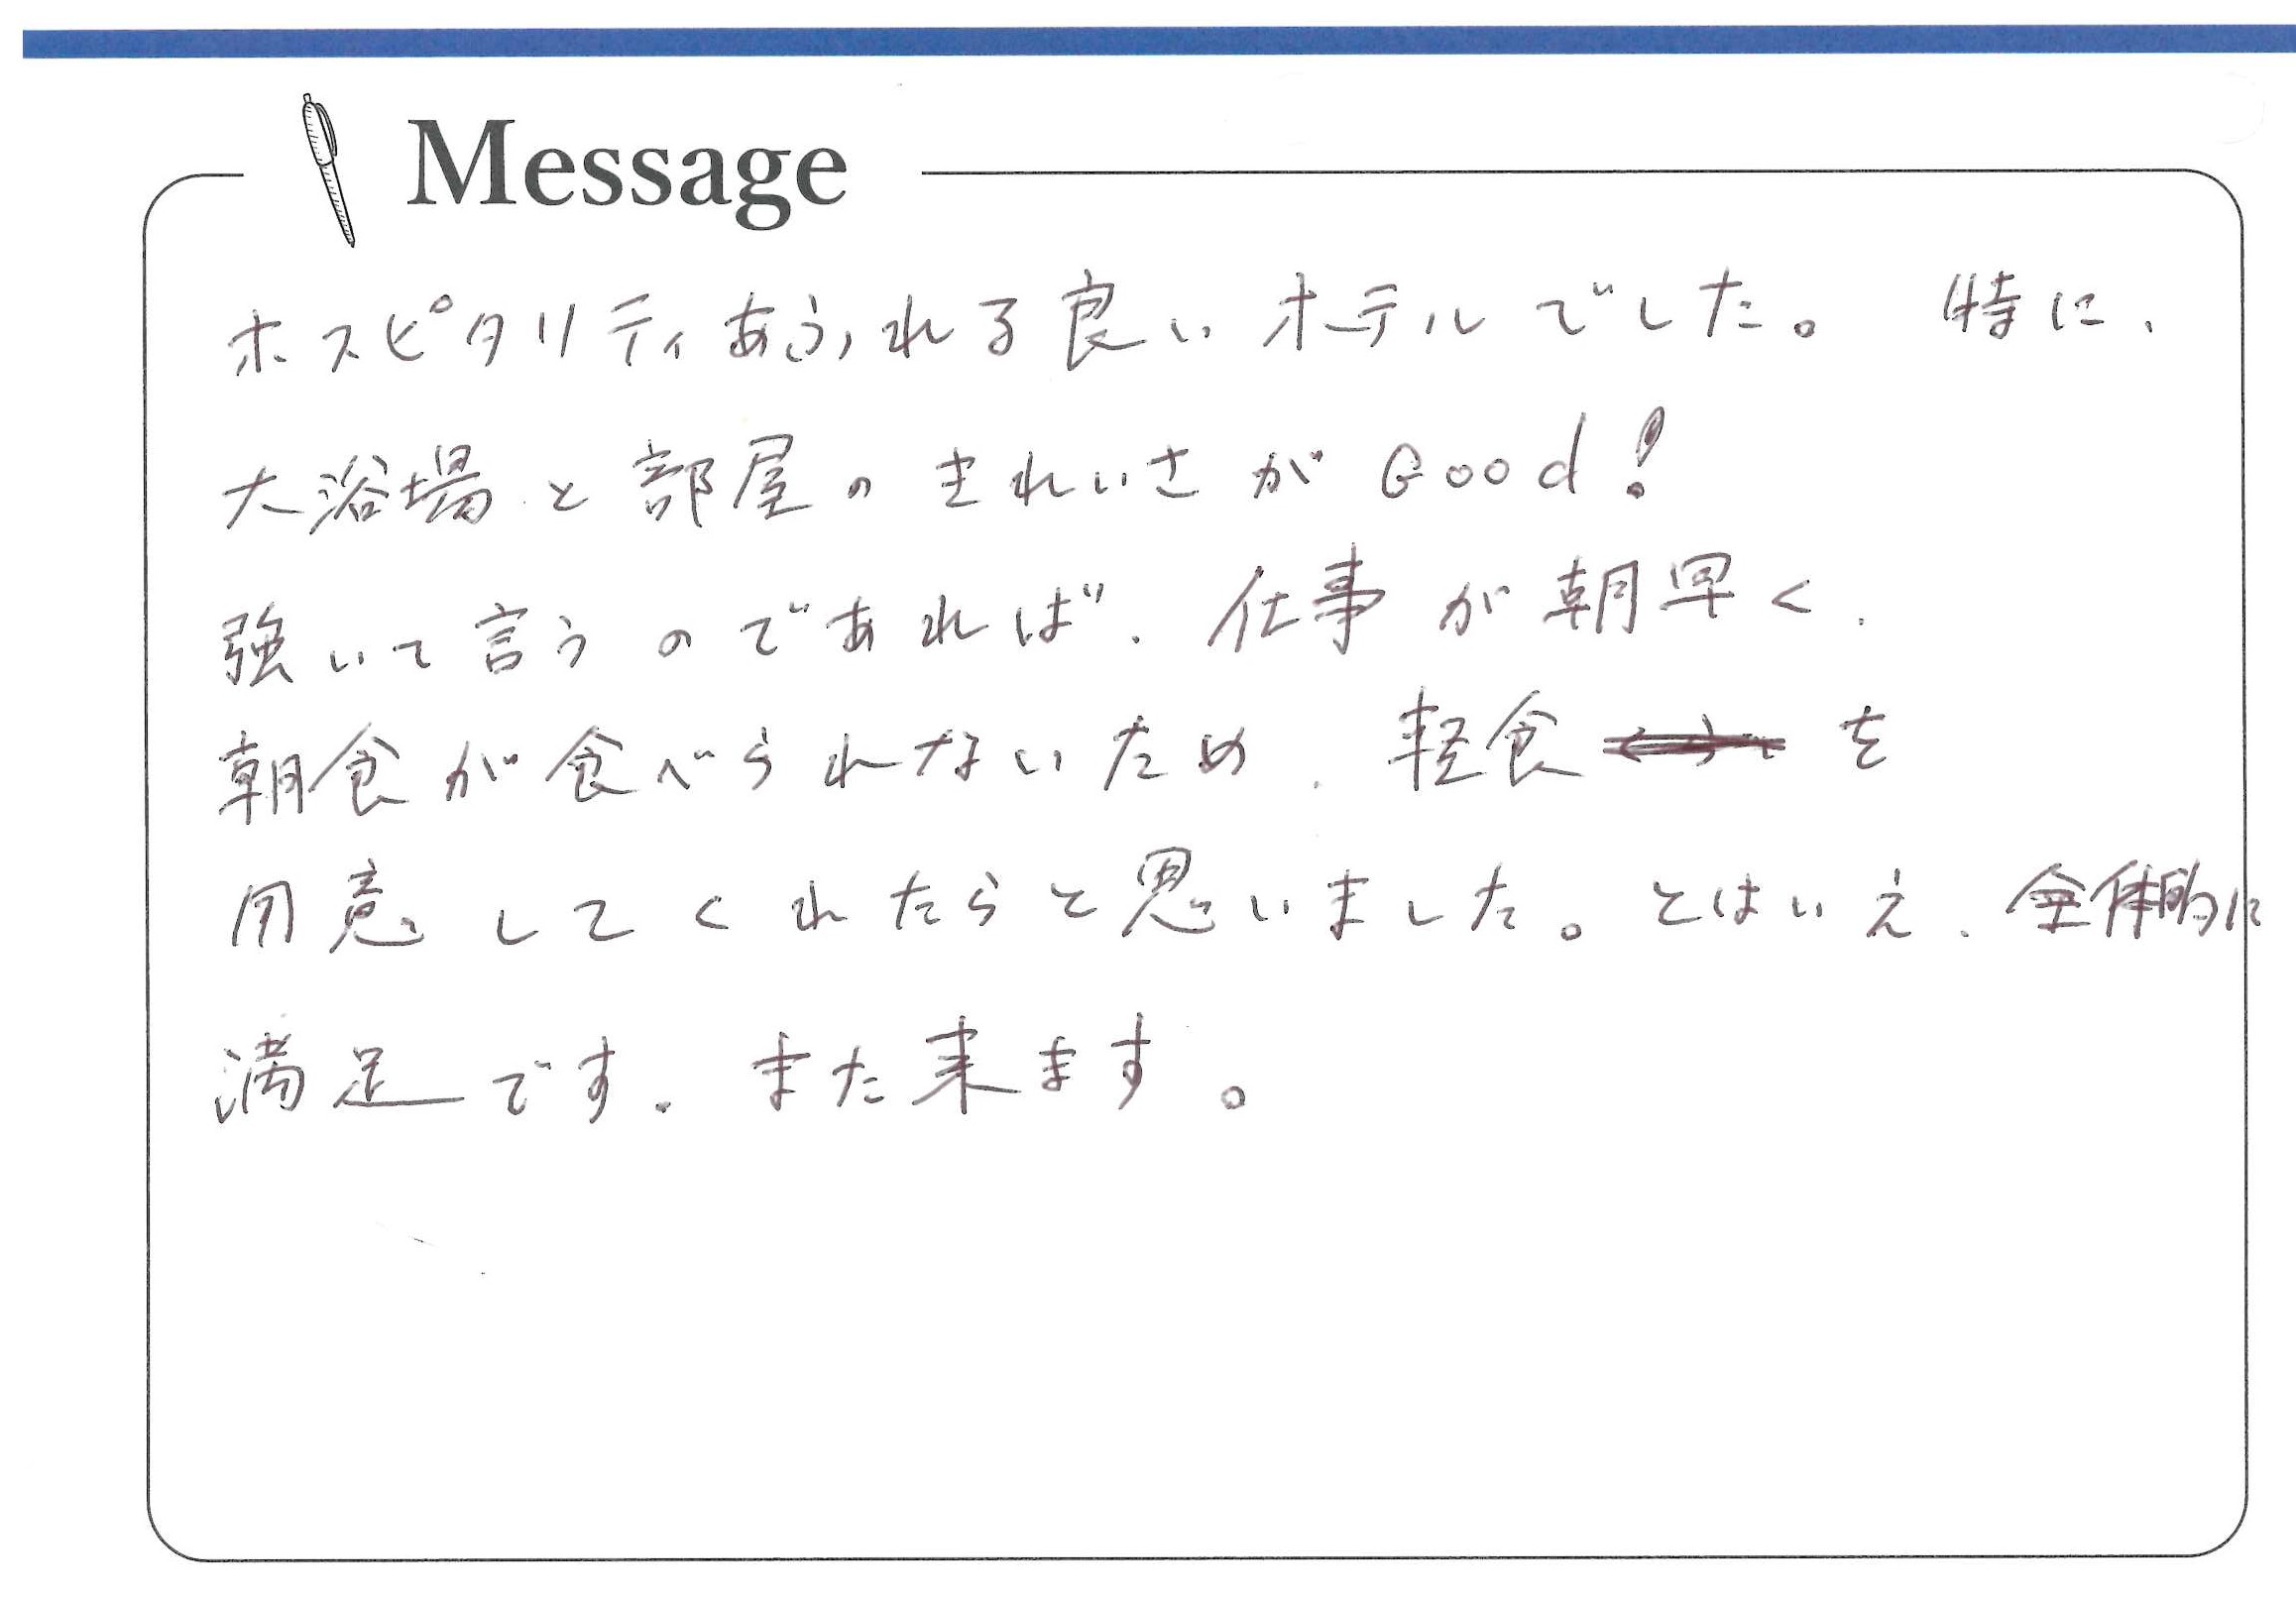 Message
ホスピタリティあふれる良いホテルでした。特に、
大浴場と部屋のきれいさがGood!
強いて言うのであれば、仕事が朝早く、
朝食が食べられないため、軽食を
用意してくれたらと思いました。とはいえ、全体的に
満足です。また来ます。